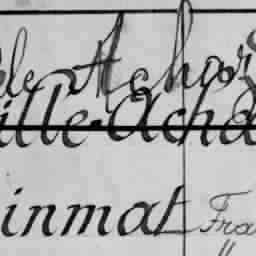 de Achor
ille Acha
inmat Fra
"